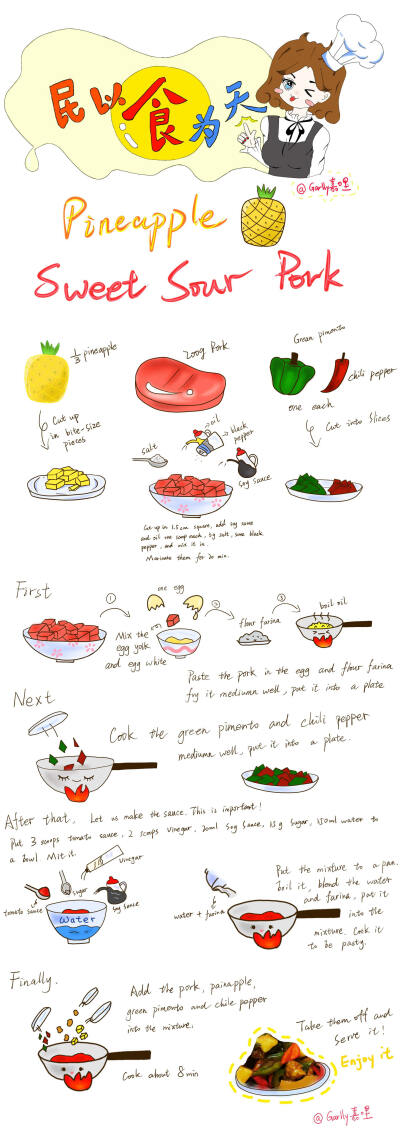 民以食为天
@Garlly嘉哩
Pineapple
Sweet Sour Pork
1/3 pineapple
200g Pork
Green pimento
chili pepper
one each
Cut up
in bite-size
pieces
salt
oil
black
pepper
soy sauce
Cut into slices
Cut up in 1.5cm square, add soy sauce
and oil one scoop each, 5g salt, some black
pepper, and mix it in.
Marinate them for 20 min.
First
①
one egg
②
③
boil oil
Mix the
egg yolk
and egg white
flour farina
Paste the pork in the egg and flour farina
fry it medium well, put it into a plate
Next
Cook the green pimento and chili pepper
medium well, put it into a plate.
After that, Let us make the sauce. This is important!
Put 3 scoops tomato sauce, 2 scoops vinegar, 20ml soy sauce, 15g sugar, 150ml water to
a bowl. Mix it.
vinegar
sugar
tomato sauce
soy sauce
Water
water + farina
Put the mixture to a pan.
boil it, blend the water
and farina, put it
into the
mixture. Cook it
to be pasty.
Finally.
Add the pork, painapple,
green pimento and chile popper
into the mixture.
Cook about 8min
Take them off and
serve it!
Enjoy it
@Garlly嘉哩